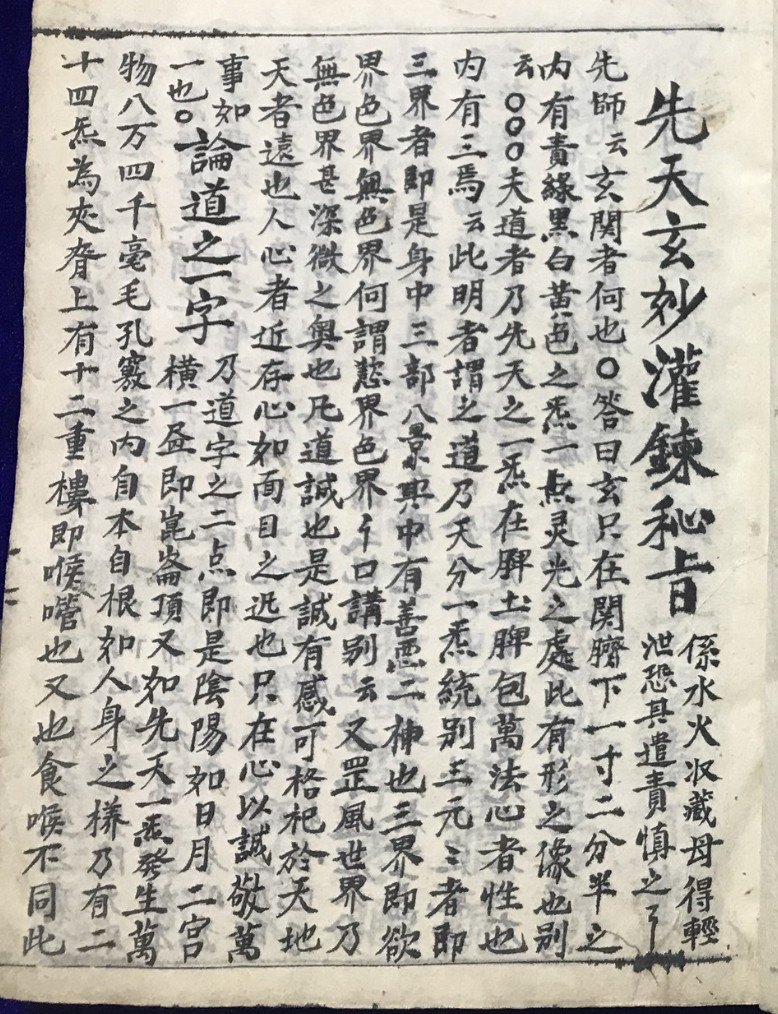 先天玄妙灌鍊秘旨
係水火収藏母得輕
泄恐其遣責慎之〻
先師云玄関者何也○答曰玄只在関臍下一寸二分半之
内有青緑黒白黄色之炁一点灵光之處此有形之像也別
云○○○夫道者乃先天之一炁在脾土脾包萬法心者性也
内有三焉云此明者謂之道乃天分一炁統別三元〻者即
三界者即是身中三部八景與中有善悪二神也三界即欲
界色界無色界何謂慾界色界〻口講别云又罡風世界乃
無色界甚深微之奥也凡道誠也是誠有感可格祀於天地
天者遠也人心者近存心如面目之迯也只在心以誠敬萬
事如論道之一字
乃道字之二点即是陰陽如日月二宮
一也○
橫一畫即崑崙頂又如先天一炁發生萬
物八万四千毫毛孔竅之内自本自根如人身之樣乃有二
十四炁為夾脊上有十二重樓即喉嚨也又也食喉不同此